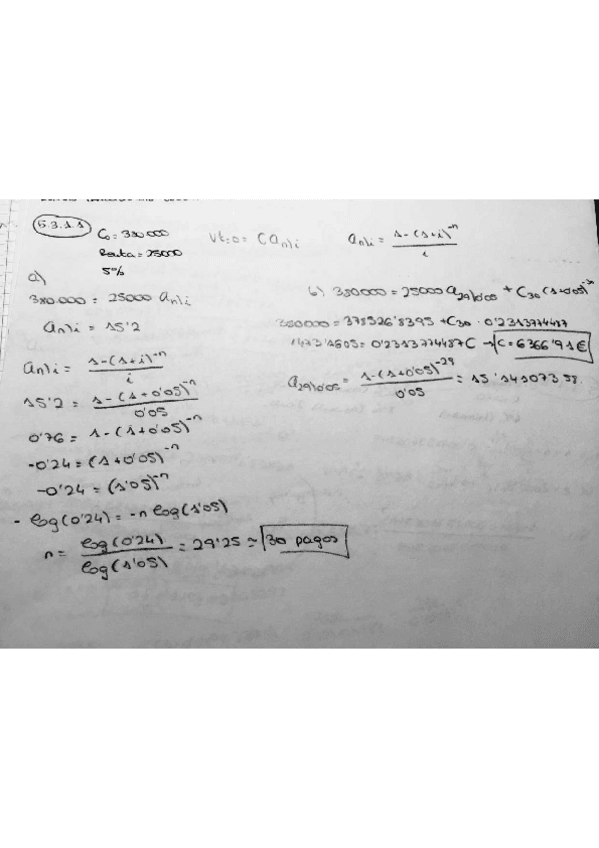 5.3.1.1
C₀ = 380000
Renta = 25000
5%
Vt=0 = C an⌉i
an⌉i = 1-(1+i)^-n / i
a)
380.000 = 25000 an⌉i
an⌉i = 15'2
an⌉i = 1-(1+i)^-n / i
15'2 = 1-(1+0'05)^-n / 0'05
0'76 = 1-(1+0'05)^-n
-0'24 = (1+0'05)^-n
-0'24 = (1'05)^-n
- log(0'24) = -n log(1'05)
n = log(0'24) / log(1'05) = 29'25 ≃ 30 pagos
b) 380000 = 25000 a29⌉0'05 + C30 (1+0'05)^-30
380000 = 378526'8395 + C30 · 0'2313774487
1473'1605 = 0'2313774487 C → C = 6366'91€
a29⌉0'05 = 1-(1+0'05)^-29 / 0'05 = 15'14107358